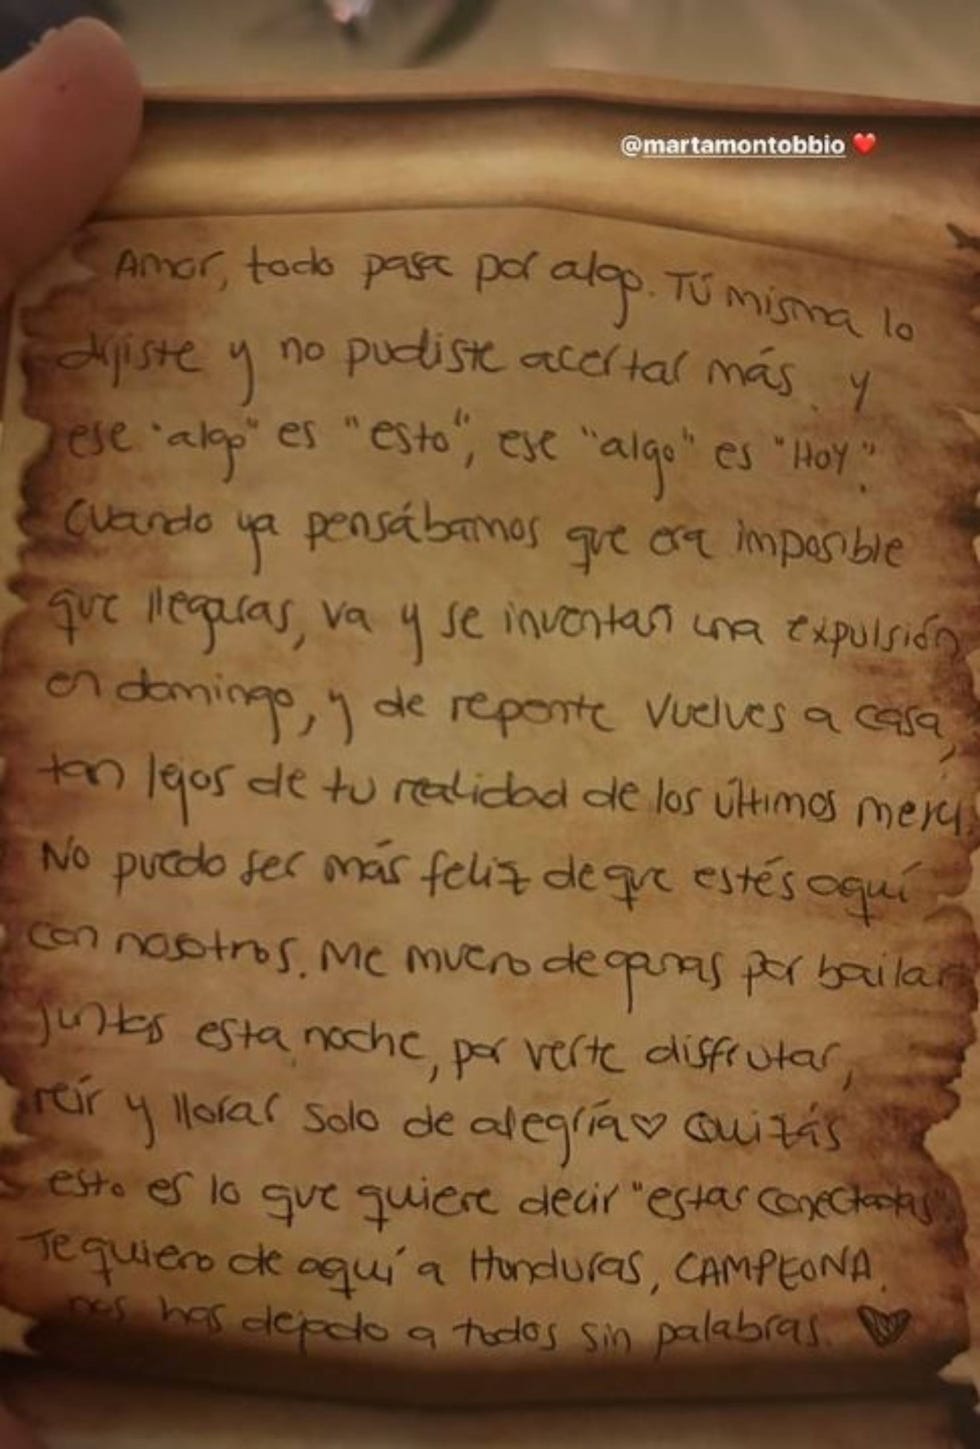 @martamontobbio ❤️
Amor, todo pasa por algo. Tú misma lo
dijiste y no pudiste acertar más. y
ese "algo" es "esto", ese "algo" es "HOY".
Cuando ya pensábamos que era imposible
que llegaras, va y se inventan una expulsión
en domingo, y de repente vuelves a casa,
tan lejos de tu realidad de los últimos
No puedo ser más feliz de que estés aquí
con nosotros. Me muero de ganas por bailar
juntas esta noche, por verte disfrutar,
reír y llorar solo de alegría♡ Quizás
esto es lo que quiere decir "estar conectadas"
Te quiero de aquí a Honduras, CAMPEONA.
nos has dejado a todos sin palabras. ♡